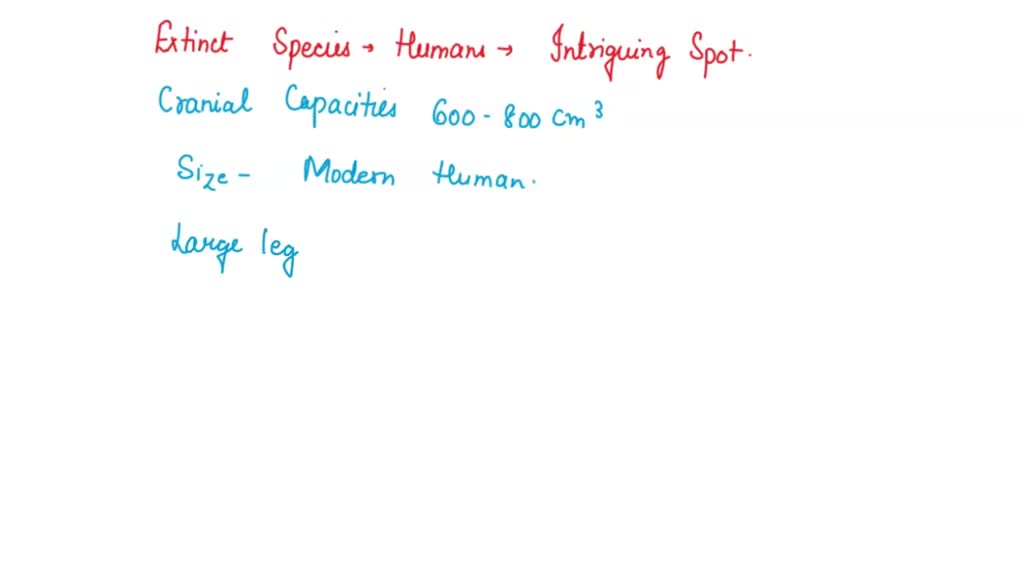 Extinct Species → Humans → Intriguing Spot.
Cranial Capacities 600 - 800 cm³
Size - Modern Human.
Large leg